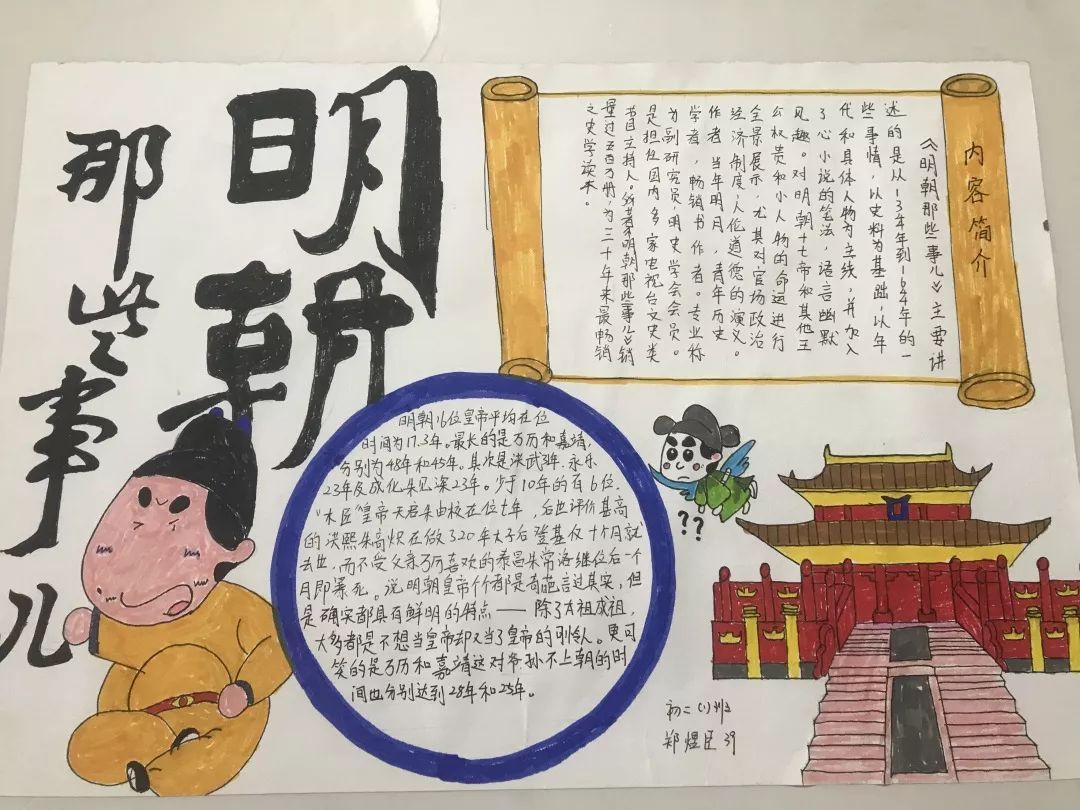 明朝
那些事儿
内容简介
《明朝那些事儿》主要讲
述的是从1344年到1644年的一
些事情，以史料为基础，以年
代和具体人物为主线，并加入
了心小说的笔法，语言幽默
见趣。对明朝十七帝和其他王
公权贵和小人物的命运进行
全景展示，尤其对官场政治
经济制度，人伦道德的演义。
作者 当年明月，青年历史
学者，畅销书作者。专业称
为副研究员，明史学会会员。
是担任国内多家电视台文史类
书目主持人。所著《明朝那些事儿》销
量过五百万册，为三十年来最畅销
之史学读本。
明朝16位皇帝平均在位
时间为17.3年。最长的是万历和嘉靖，
分别为48年和45年。其次是洪武31年，永乐
23年及成化朱见深23年。少于10年的有6位，
"木匠"皇帝天启朱由校在位七年，后世评价甚高
的洪熙朱高炽在做了20年太子后登基仅十个月就
去世，而不受父亲万历喜欢的泰昌朱常洛继位后一个
月即暴死。说明朝皇帝个个都是奇葩言过其实，但
是确实都具有鲜明的特点——除了太祖成祖，
大多都是不想当皇帝却又当了皇帝的可怜人。更可
笑的是万历和嘉靖这对爷孙不上朝的时
间也分别达到28年和25年。
??
初二(1)班
郑煜臣 39